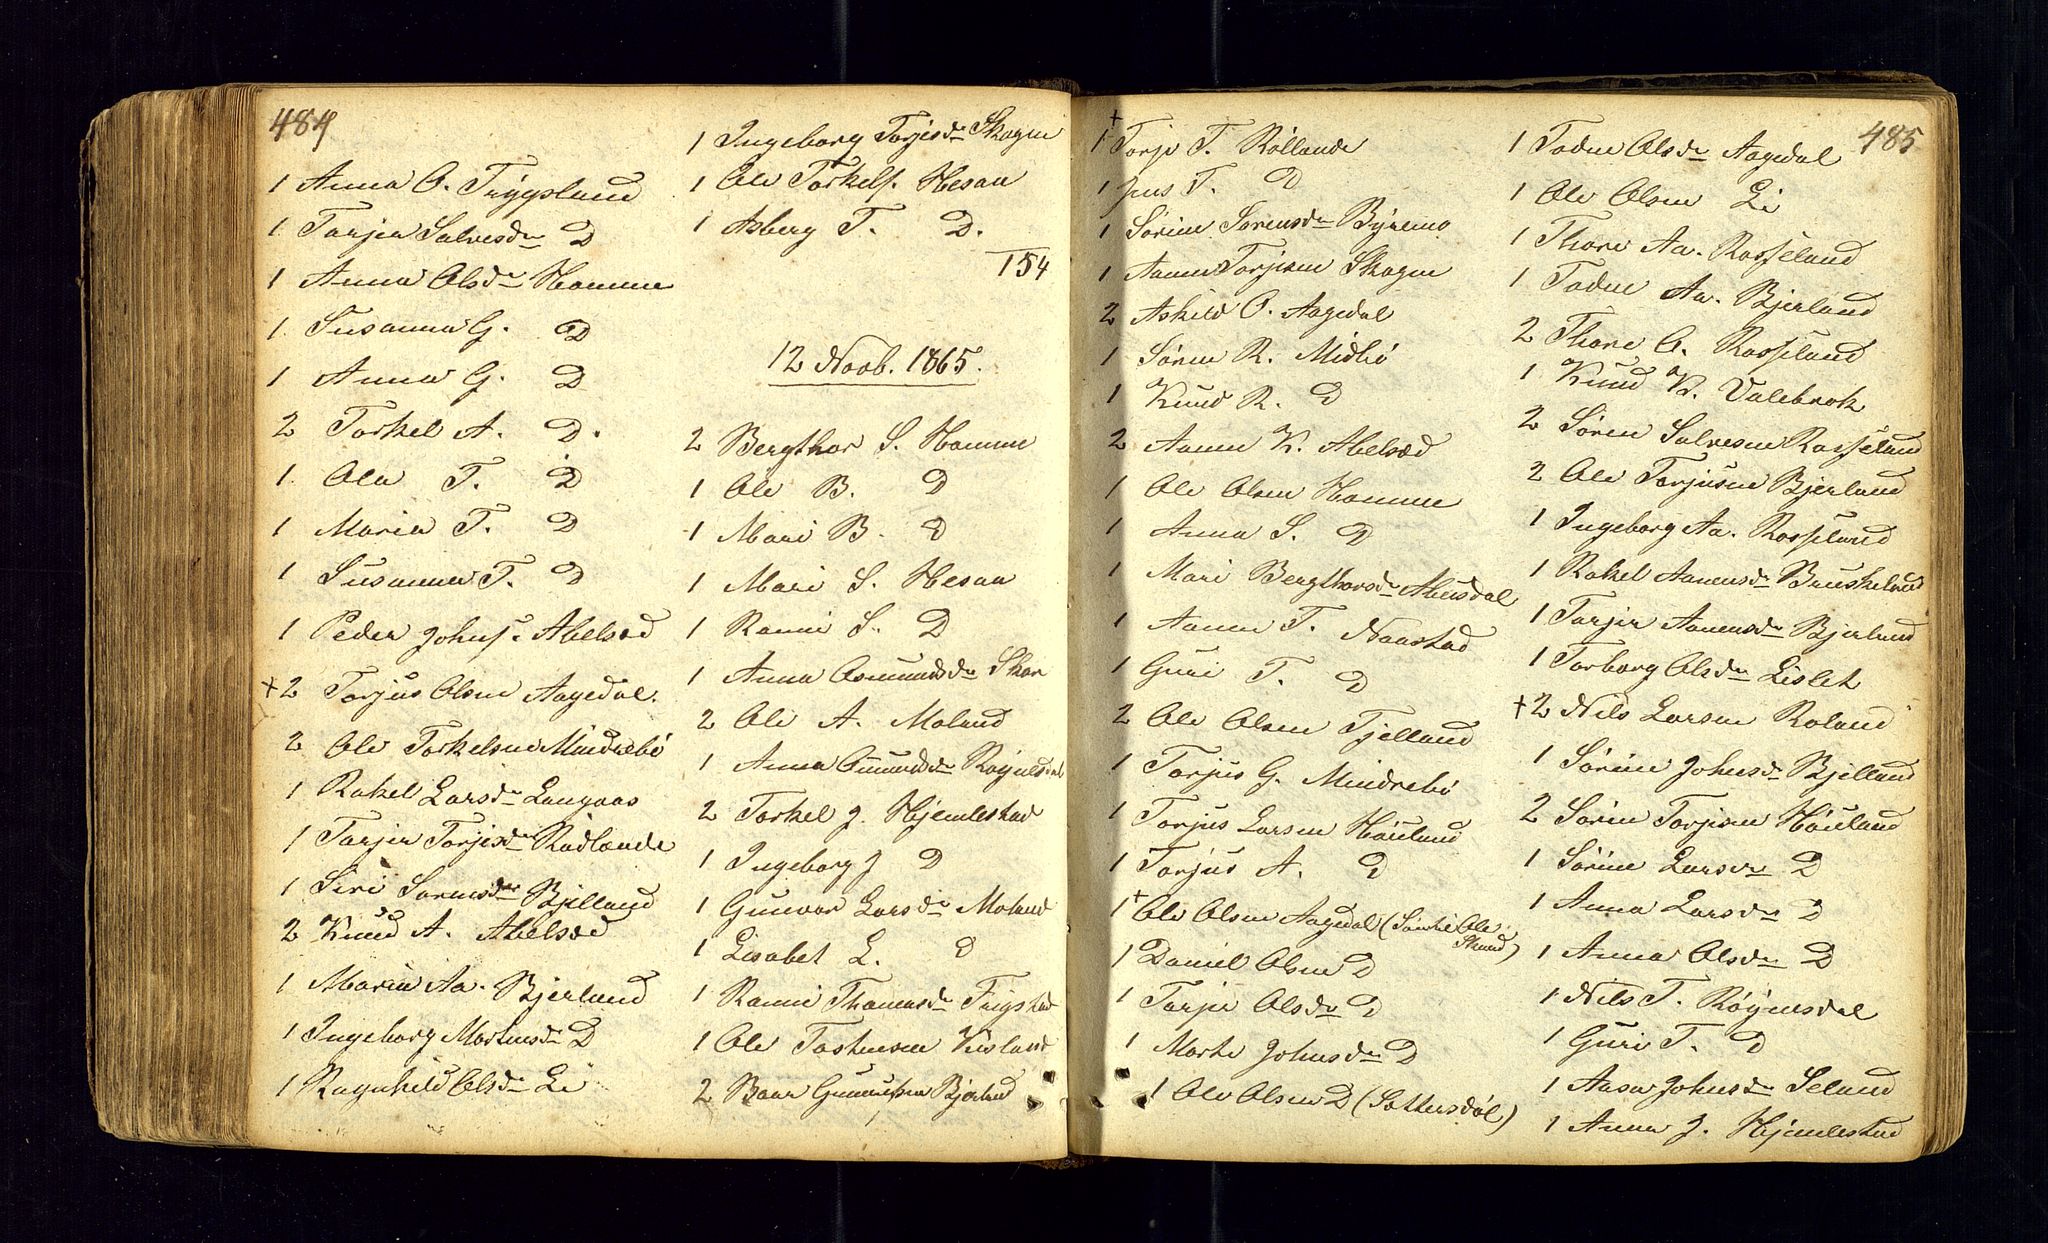 484
1 Anna O. Trygsland
1 Tarjer Salvesdr D
1 Anna Olsdr Homme
1 Susanna G. D
1 Anna G. D
2 Torkel A. D.
1 Ole T. D
1 Maria T. D
1 Susanna T. D
1 Peder Johns. Abelsæd
+2 Torjus Olsen Aagedal.
2 Ole Torkelsen Mindrebö
1 Rakel Larsdr Langaas
1 Tarjer Torjesdr
1 Siri Sørensdr Bjelland
2 Knud A. Abelsæd
1 Maren Aa. Bjerland
1 Ingeborg Mortensdr D
1 Ragnhild Olsdr Li
1 Ingeborg Torjesdr Skogen
1 Ole Torkels. Hesaa
1 Asberg T. D.
154
12 Novb. 1865.
2 Bergthor S. Homme
1 Ole B. D
1 Mari B. D
1 Mari S. Hesaa
1 Ranni S. D
1 Anna Osmundsdr Skar
2 Ole A. Moland
1 Anna Omundsdr
2 Torkel J. Hjemlestad
1 Ingeborg J D
1 Gunvor Larsdr Moland
1 Lisabet L. D
1 Ranni Thomesdr
1 Ole Tostensen
2 Baar Gunnufsen Bjerland
485
+
1 Torje T. Røllande
1 Jens T. D
1 Sørine Sørensdr Byremo
1 Aanen Torjesen Skogen
2 Askild O. Aagedal
1 Søren R. Midbö
1 Knud R. D
2 Aanen K. Abelsæd
1 Ole Olsen Homme
1 Anna S. D
1 Mari Bergthorsdr Abusdal
1 Aanen T. Naastad
1 Guri T. D
2 Ole Olsen Tjelland
1 Torjus G. Mindrebö
1 Torjus Larsen Høiland
1 Torjus A. D
+
1 Ole Olsen Aagedal
1 Daniel Olsen D
1 Tarjer Olsdr D
1 Marte Johnsdr D
1 Ole Olsen D (Sottersdøl)
1 Todne Olsdr Aagedal
1 Ole Olsen Li
1 Thore Aa. Rosseland
1 Todne Aa. Bjerland
2 Thore O. Rosseland
1 Knud K. Valebrok
2 Søren Salvesen Rosseland
2 Ole Torjusen Bjerland
1 Ingeborg Aa. Rosseland
1 Rakel Aanensdr Bruskeland
1 Tarjer Aanensdr Bjerland
1 Torborg Olsdr Lislet
+2 Nils Larsen Roland
1 Sørine Johnsdr Bjelland
2 Søren Torjesen Høiland
1 Sørine Larsdr D
1 Anna Larsdr D
1 Anna Olsdr D
1 Nils T. Røynesdal
1 Guri T. D
1 Aasa Johnsdr Seland
1 Anna J. Hjemlestad